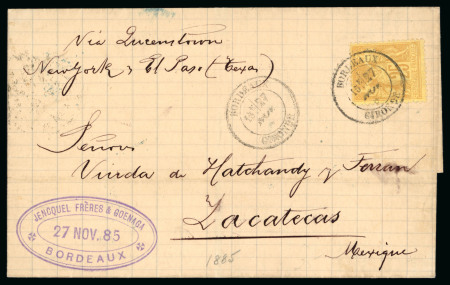 Via Queenstown
New York & El Paso (Texas)
BORDEAUX
GIRONDE
BORDEAUX
GIRONDE
Señores
Viuda de Hatchandy y Ferran
Zacatecas
Mexique
JENCQUEL FRÈRES & GOENAGA
27 NOV. 85
BORDEAUX
1885